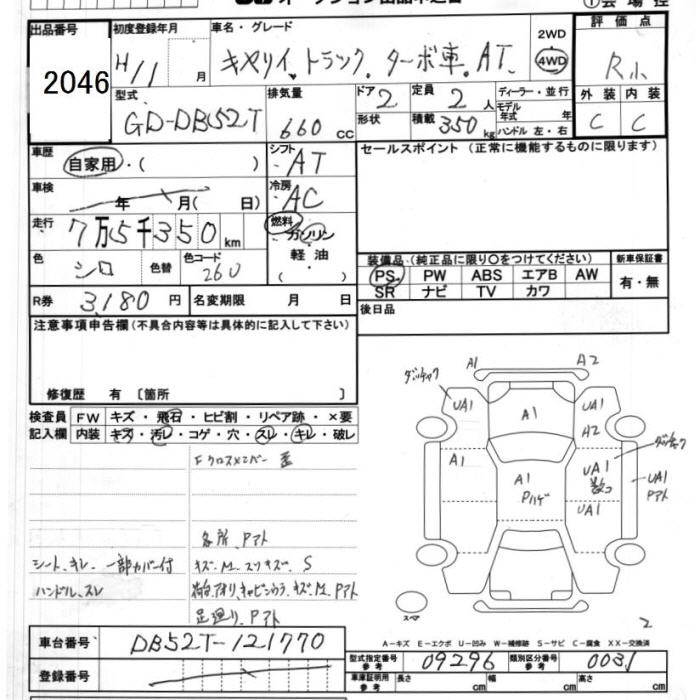 ①会場控
出品番号 2046
初度登録年月 H11 月
車名・グレード キャリイ、トラック、ターボ車、AT、
2WD 4WD
評価点 R小
型式 GD-DB52T
排気量 660 CC
ドア 2 形状
定員 2 人 積載 350 kg
ディーラー・並行
モデル年式 年
ハンドル 左・右
外装 C 内装 C
車歴 自家用・( )
シフト AT
セールスポイント (正常に機能するものに限ります)
車検 年 月( 日)
冷房 AC
走行 7万5千350km
燃料 ガソリン 軽油 ・( )
色 シロ 色替 色コード 26U
装備品・(純正品に限り○をつけてください)
新車保証書 有・無
PS PW ABS エアB AW
SR ナビ TV カワ
R券 3,180 円
名変期限 月 日
後日品
注意事項申告欄(不具合内容等は具体的に記入して下さい)
修復歴 有 〔箇所 〕
検査員記入欄 FW キズ・飛石・ヒビ割・リペア跡・×要
内装 キズ・汚レ・コゲ・穴・スレ・キレ・破レ
Fクロスメンバー 歪
各所、Pアト
シート、キレ、一部カバー付 キズ、M、スリキズ、S
ハンドル、スレ 荷台、アオリ、キャビンウラ、キズ、M、Pアト
足廻り、Pアト
A1 A2
UA1 A1 UA1
A2
A1 A1 Pハゲ UA1 UA1 Pアト
UA1
スペア
2
A-キズ E-エクボ U-凹み W-補修跡 S-サビ C-腐食 XX-交換済
車台番号 DB52T-121770
型式指定番号 参考 09296
類別区分番号 参考 0031
登録番号
車庫証明用参考 長さ cm 幅 cm 高さ cm